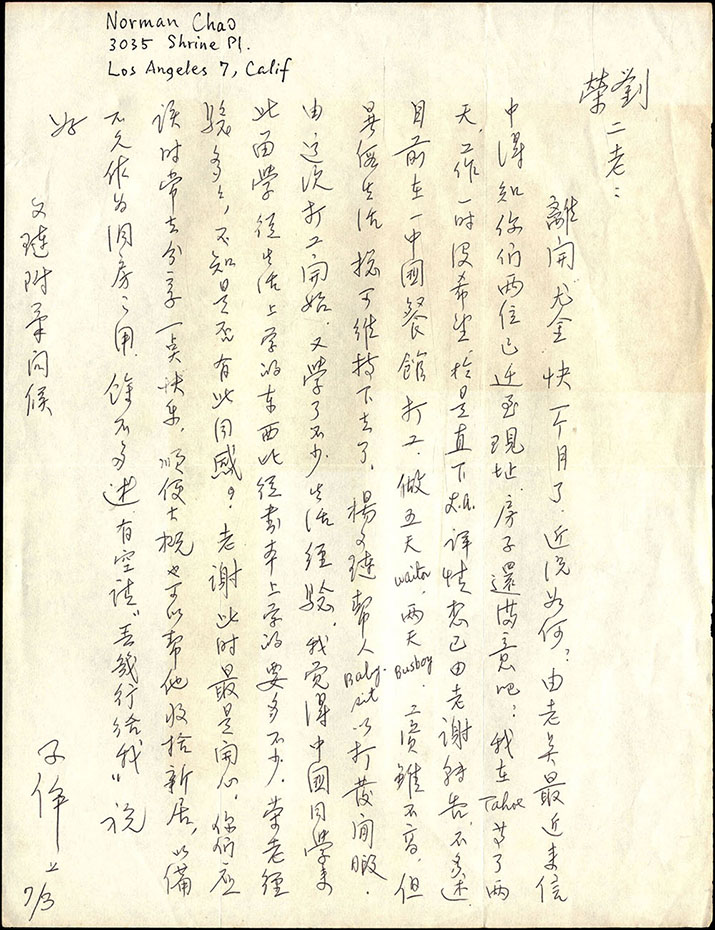 Norman Chao
3035 Shrine Pl.
Los Angeles 7, Calif
劉
榮 二老：
離開尤金快一个月了，近況如何？由老吳最近來信
中得知你们两位已迁至現址，房子還滿意吧？我在Tahoe等了两
天，工作一时没希望，於是直下L.A. 详情想已由老謝转告，不多述
目前在一中國餐館打工，做五天waiter，两天Busboy，工資雖不高，但
異侶生活总可维持下去了，楊文璉幫人Baby-sit以打發閒暇，
由这次打工開始，又學了不少生活經驗，我觉得中國同學来
此留學從生活上学的东西比從書本上学的要多不少，榮老經
驗多了，不知是否有此同感？老謝此时最是開心，你们应
该时常去分享一点快乐，順便大概也可以帮他收拾新居，以備
不久作为洞房之用，餘不多述，有空请"丢幾行给我" 祝
好
文璉附筆问候
子倬上
7/3